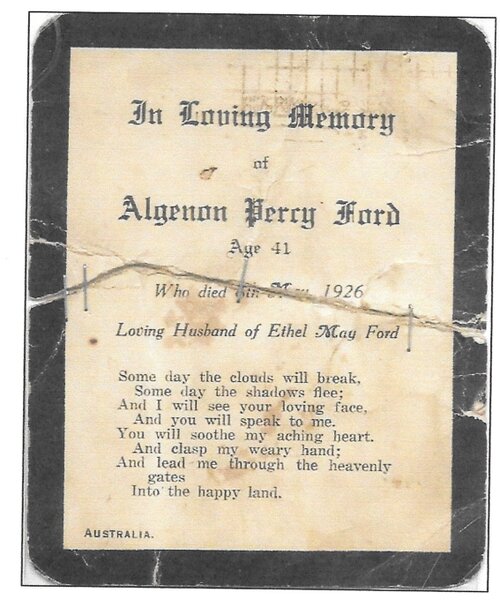 In Loving Memory
of
Algenon Percy Ford
Age 41
Who died May, 1926
Loving Husband of Ethel May Ford
Some day the clouds will break,
Some day the shadows flee;
And I will see your loving face,
And you will speak to me.
You will soothe my aching heart.
And clasp my weary hand;
And lead me through the heavenly
gates
Into the happy land.
AUSTRALIA.